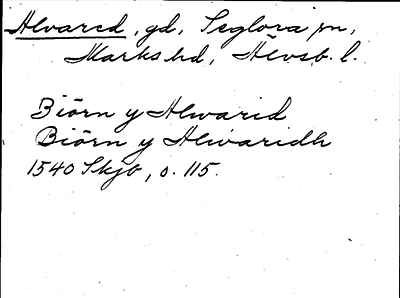 Alvared, gd, Seglora sn,
Marks hd, Älvsb. l.
Biörn y Alwarid
Biörn y Alwaridh
1540 Skjb, s. 115.